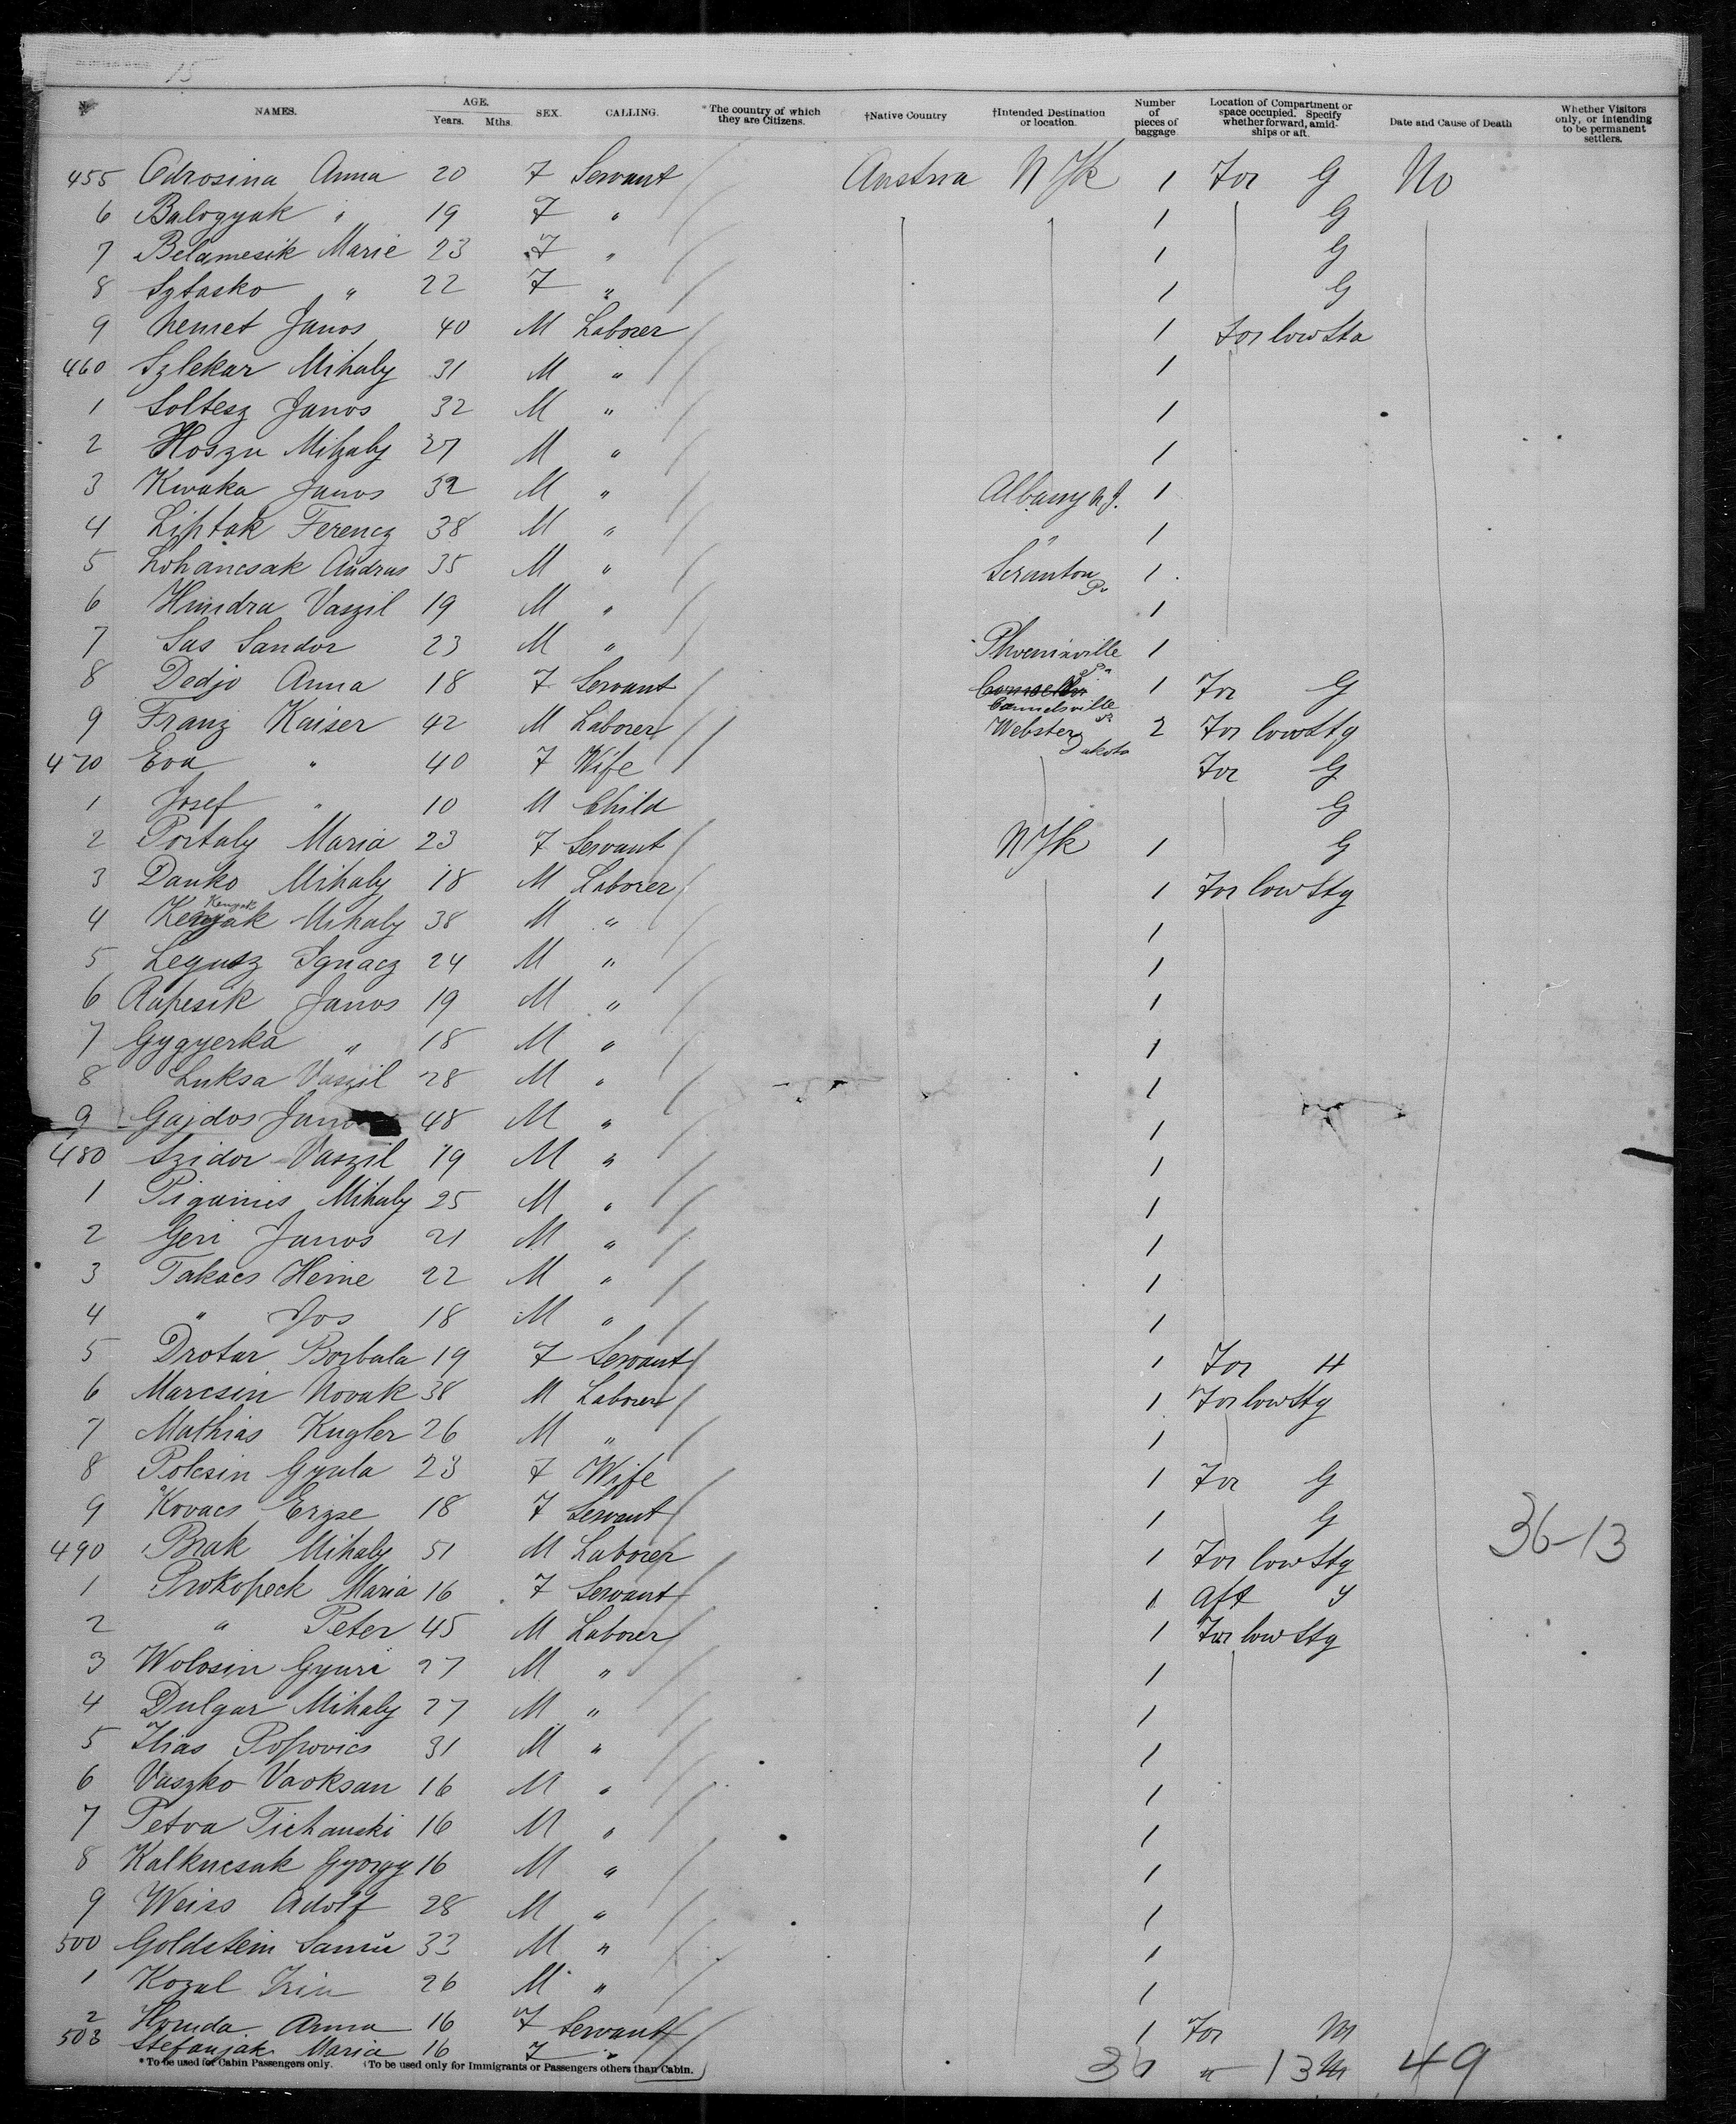 15
No NAMES. AGE. Years. Mths. SEX. CALLING. *The country of which they are Citizens. †Native Country †Intended Destination or location. Number of pieces of baggage Location of Compartment or space occupied. Specify whether forward, amidships or aft. Date and Cause of Death Whether Visitors only, or intending to be permanent settlers.
455 Odrosina Anna 20 F Servant Austria N Yk 1 For G No
6 Balogyak " 19 F " 1 G
7 Belamesik Marie 23 F " 1 G
8 Sztasko " 22 F " 1 G
9 Nemet Janos 40 M Laborer 1 For low Stg
460 Szlekar Mihaly 31 M " 1
1 Soltesz Janos 32 M " 1
2 Hoszu Mihaly 37 M " 1
3 Kwaka Janos 32 M " Albany N.J. 1
4 Liptak Ferencz 38 M " " 1
5 Lohancsak Andras 35 M " Scranton Pa 1
6 Hundra Vaszil 19 M " 1
7 Sas Sandor 23 M " Phoenixville Pa 1
8 Dedjo Anna 18 F Servant Connelsville Pa 1 For G
9 Franz Kaiser 42 M Laborer Webster Dakota 2 For low Stg
470 Eva " 40 F Wife For G
1 Josef " 10 M Child G
2 Portaly Maria 23 F Servant N Yk 1 G
3 Danko Mihaly 18 M Laborer 1 For low Stg
4 Kenyak Mihaly 38 M " 1
5 Legusz Ignacz 24 M " 1
6 Rapesik Janos 19 M " 1
7 Gygyerka " 18 M " 1
8 Luksa Vaszil 28 M " 1
9 Gajdos Jano 48 M " 1
480 Szidor Vaszil 19 M " 1
1 Piganis Mihaly 25 M " 1
2 Geri Janos 21 M " 1
3 Takacs Heine 22 M " 1
4 " Jos 18 M " 1
5 Drotar Borbala 19 F Servant 1 For H
6 Marcsin Novak 38 M Laborer 1 For low Stg
7 Mathias Kugler 26 M " 1
8 Polcsin Gyula 23 F Wife 1 For G
9 Kovacs Erzse 18 F Servant 1 G
36-13
490 Brak Mihaly 51 M Laborer 1 For low Stg
1 Prokopeck Maria 16 F Servant 1 Aft Y
2 " Peter 45 M Laborer 1 For low Stg
3 Wolosin Gyuri 27 M " 1
4 Dulgar Mihaly 27 M " 1
5 Ilias Popovics 31 M " 1
6 Vaszko Vaoksan 16 M " 1
7 Petra Tichanski 16 M " 1
8 Kalkucsak Gyorgy 16 M " 1
9 Weiss Adolf 28 M " 1
500 Goldstein Samu 33 M " 1
1 Kozal Irin 26 M " 1
2 Honda Anna 16 F Servant 1 For M
503 Stefanjak Maria 16 F " 1 " M
*To be used for Cabin Passengers only. †To be used only for Immigrants or Passengers others than Cabin.
36 13 49